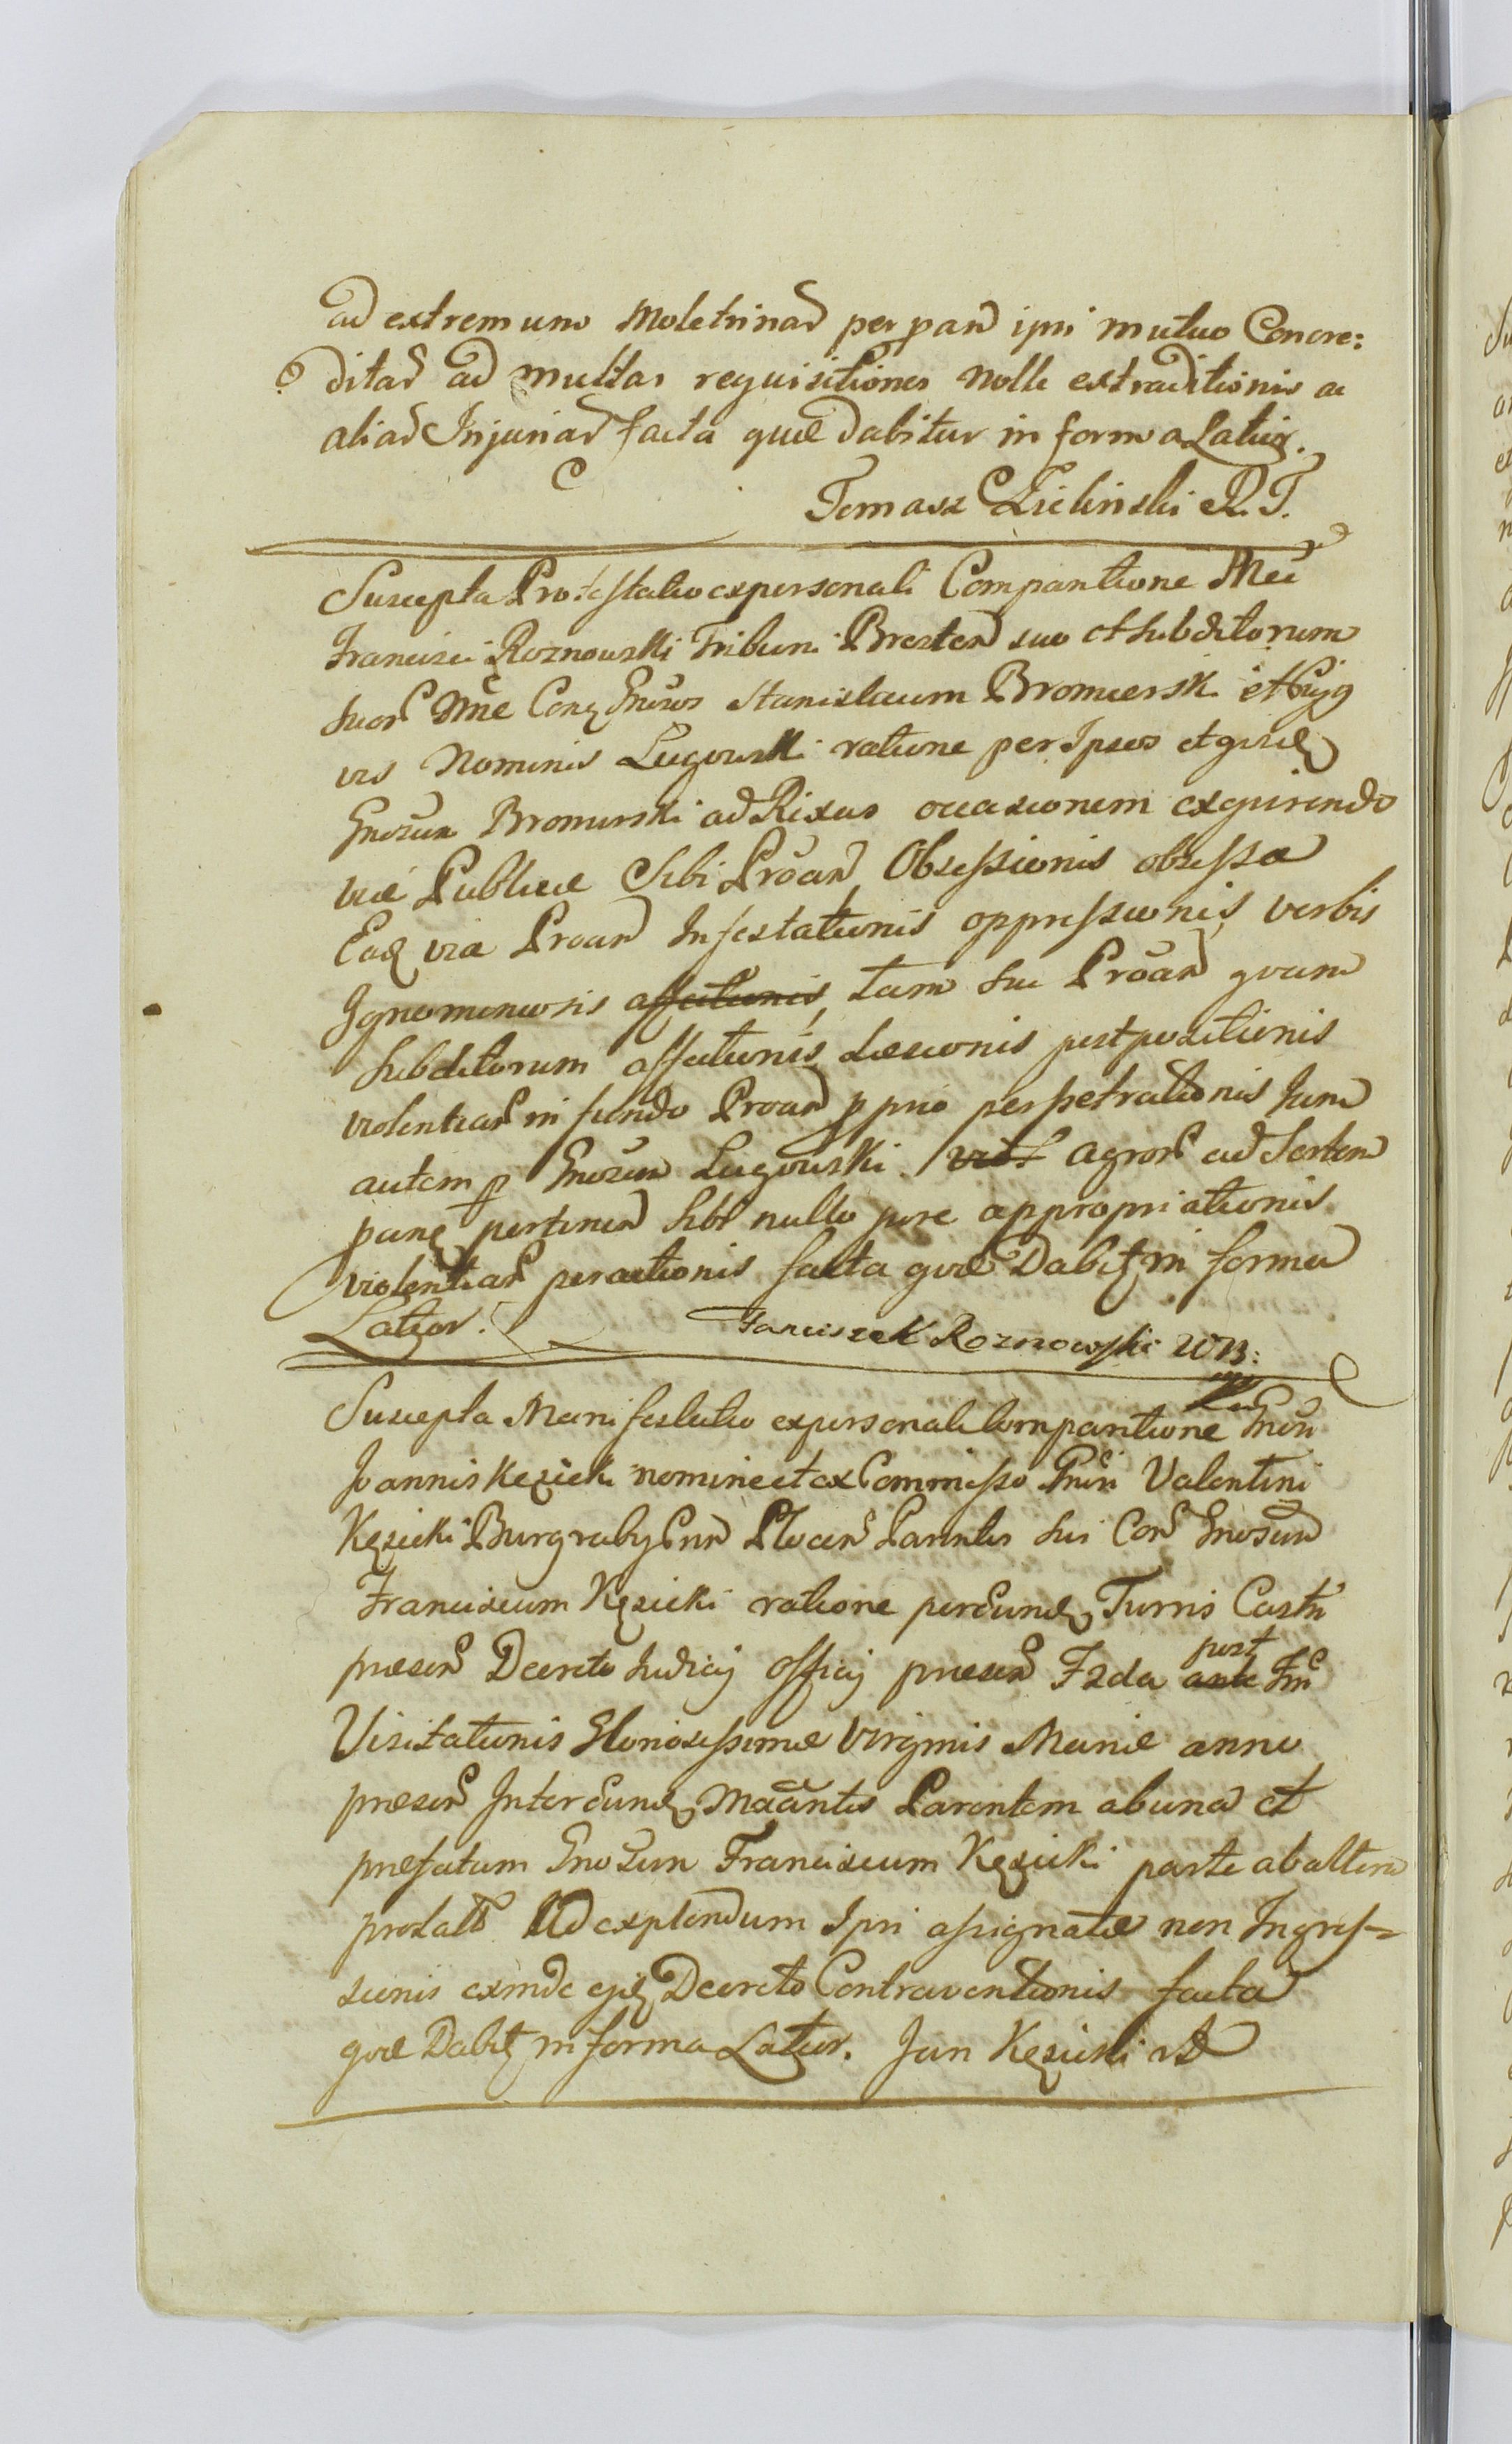 ad extremum Moletrinar per pan ipsi mutuo Concre:
ditar ad multas requisitiones nolle extraditionis ac
aliar Injuriar facta quæ dabitur in forma Latior.
Tomasz Zielinski R. T.
Suscepta Protestatio ex personali Comparitione Mci
Francisci Roznowski Tribuni Bresten suo et subditorum
suor Nne Con Gnosos Stanislaum Bromierski et
vis Nominis Lugowski ratione per Ipsos et quidem
Gnosum Bromirski ad Rixas occasionem exquirendo
viæ Publicæ Sibi Proan Obsessionis obsessa
Eaq via Proan Infestationis oppressionis, verbis
Ignominiosis affectionis, tam sui Proan quam
Subditorum affectionis Læsionis postpositionis
violentiar in fundo Proan pprio perpetrationis Tum
autem p Gnosum Lugowski viol agror ad Sortem
pertinen Sibi nullo jure appropriationis
violentiar peractionis facta quæ Dabit in forma
Latior. Franciszek Roznowski WB:
Suscepta Manifestatio ex personali Comparitione Gnosi
Joannis Kęsicki nomine et ex Commisso Gnosi Valentini
Kęsicki Burgrabij Cnn Plocen Parentis sui Con Gnosum
Franciscum Kęsicki ratione per eund Turris Castri
præsen Decreto Judicij Officij præsen Fzda ante post Fm
Visitationis Gloriosissimæ Virginis Mariæ anno
præsen Inter eund Mãantis Parentem ab una et
præfatum Gnosum Franciscum Kęsicki parte ab altera
prolato Ad explendum Ipsi assignatæ non Ingres=
sionis exinde ejq Decreto Contraventionis facta
quæ Dabit in forma Latior. Jan Kęsicki